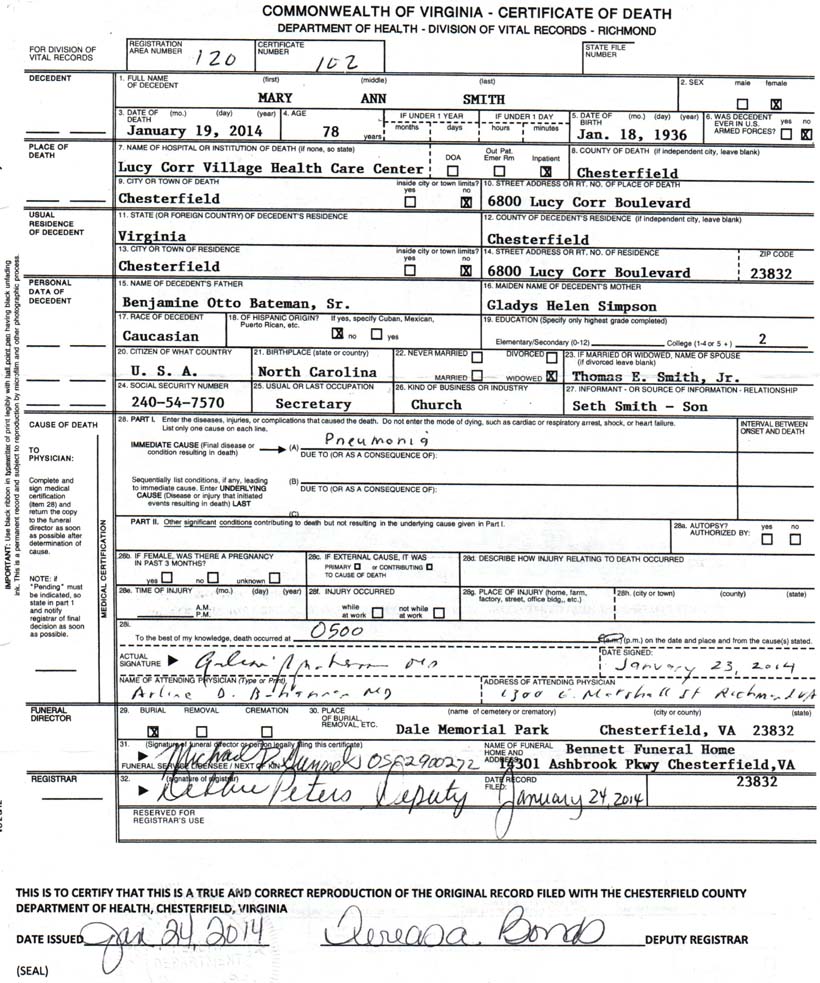 COMMONWEALTH OF VIRGINIA - CERTIFICATE OF DEATH
DEPARTMENT OF HEALTH - DIVISION OF VITAL RECORDS - RICHMOND
FOR DIVISION OF VITAL RECORDS
REGISTRATION AREA NUMBER 120
CERTIFICATE NUMBER 102
STATE FILE NUMBER
DECEDENT
1. FULL NAME OF DECEDENT (first) (middle) (last)
MARY ANN SMITH
2. SEX male female X
3. DATE OF DEATH (mo.) (day) (year)
January 19, 2014
4. AGE 78 years
IF UNDER 1 YEAR months days
IF UNDER 1 DAY hours minutes
5. DATE OF BIRTH (mo.) (day) (year)
Jan. 18, 1936
6. WAS DECEDENT EVER IN U.S. ARMED FORCES? yes no X
PLACE OF DEATH
7. NAME OF HOSPITAL OR INSTITUTION OF DEATH (if none, so state)
Lucy Corr Village Health Care Center
DOA Out Pat. Emer Rm Inpatient X
8. COUNTY OF DEATH (if independent city, leave blank)
Chesterfield
9. CITY OR TOWN OF DEATH
Chesterfield
inside city or town limits? yes no X
10. STREET ADDRESS OR RT. NO. OF PLACE OF DEATH
6800 Lucy Corr Boulevard
USUAL RESIDENCE OF DECEDENT
11. STATE (OR FOREIGN COUNTRY) OF DECEDENT'S RESIDENCE
Virginia
12. COUNTY OF DECEDENT'S RESIDENCE (if independent city, leave blank)
Chesterfield
13. CITY OR TOWN OF RESIDENCE
Chesterfield
inside city or town limits? yes no X
14. STREET ADDRESS OR RT. NO. OF RESIDENCE
6800 Lucy Corr Boulevard
ZIP CODE
23832
PERSONAL DATA OF DECEDENT
15. NAME OF DECEDENT'S FATHER
Benjamine Otto Bateman, Sr.
16. MAIDEN NAME OF DECEDENT'S MOTHER
Gladys Helen Simpson
17. RACE OF DECEDENT
Caucasian
18. OF HISPANIC ORIGIN? If yes, specify Cuban, Mexican, Puerto Rican, etc.
X no yes
19. EDUCATION (Specify only highest grade completed)
Elementary/Secondary (0-12) College (1-4 or 5 +) 2
20. CITIZEN OF WHAT COUNTRY
U. S. A.
21. BIRTHPLACE (state or country)
North Carolina
22. NEVER MARRIED DIVORCED
MARRIED WIDOWED X
23. IF MARRIED OR WIDOWED, NAME OF SPOUSE (if divorced leave blank)
Thomas E. Smith, Jr.
24. SOCIAL SECURITY NUMBER
240-54-7570
25. USUAL OR LAST OCCUPATION
Secretary
26. KIND OF BUSINESS OR INDUSTRY
Church
27. INFORMANT - OR SOURCE OF INFORMATION - RELATIONSHIP
Seth Smith - Son
CAUSE OF DEATH
TO PHYSICIAN:
Complete and sign medical certification (item 28) and return the copy to the funeral director as soon as possible after determination of cause.
NOTE: if "Pending" must be indicated, so state in part 1 and notify registrar of final decision as soon as possible.
MEDICAL CERTIFICATION
28. PART I. Enter the diseases, injuries, or complications that caused the death. Do not enter the mode of dying, such as cardiac or respiratory arrest, shock, or heart failure.
List only one cause on each line.
INTERVAL BETWEEN ONSET AND DEATH
IMMEDIATE CAUSE (Final disease or condition resulting in death)
(A) Pneumonia
DUE TO (OR AS A CONSEQUENCE OF):
Sequentially list conditions, if any, leading to immediate cause. Enter UNDERLYING CAUSE (Disease or injury that initiated events resulting in death) LAST
(B)
DUE TO (OR AS A CONSEQUENCE OF):
(C)
PART II. Other significant conditions contributing to death but not resulting in the underlying cause given in Part I.
28a. AUTOPSY? AUTHORIZED BY: yes no
28b. IF FEMALE, WAS THERE A PREGNANCY IN PAST 3 MONTHS?
yes no unknown
28c. IF EXTERNAL CAUSE, IT WAS
PRIMARY or CONTRIBUTING
TO CAUSE OF DEATH
28d. DESCRIBE HOW INJURY RELATING TO DEATH OCCURRED
28e. TIME OF INJURY (mo.) (day) (year)
A.M.
P.M.
28f. INJURY OCCURRED
while at work not while at work
28g. PLACE OF INJURY (home, farm, factory, street, office bldg., etc.)
28h. (city or town) (county) (state)
28i.
To the best of my knowledge, death occurred at 0500 (a.m.) (p.m.) on the date and place and from the cause(s) stated.
ACTUAL SIGNATURE MD
DATE SIGNED:
January 23, 2014
NAME OF ATTENDING PHYSICIAN (Type or Print)
Arline D. MD
ADDRESS OF ATTENDING PHYSICIAN
1300 E. Marshall St Richmond VA
FUNERAL DIRECTOR
29. BURIAL REMOVAL CREMATION
X
30. PLACE OF BURIAL, REMOVAL, ETC.
(name of cemetery or crematory) (city or county) (state)
Dale Memorial Park Chesterfield, VA 23832
31. (Signature of funeral director or person legally filing this certificate)
Michael 0502900272
FUNERAL SERVICE LICENSEE / NEXT OF KIN
NAME OF FUNERAL HOME AND ADDRESS:
Bennett Funeral Home
14301 Ashbrook Pkwy Chesterfield,VA
23832
REGISTRAR
32. (signature of registrar)
Debbie Peters Deputy
DATE RECORD FILED:
January 24, 2014
RESERVED FOR REGISTRAR'S USE
IMPORTANT: Use black ribbon in typewriter of print legibly with ball point pen having black unfading
ink. This is a permanent record and subject to reproduction by microfilm and other photographic process.
THIS IS TO CERTIFY THAT THIS IS A TRUE AND CORRECT REPRODUCTION OF THE ORIGINAL RECORD FILED WITH THE CHESTERFIELD COUNTY
DEPARTMENT OF HEALTH, CHESTERFIELD, VIRGINIA
DATE ISSUED Jan 24, 2014 Tereasa Bonds DEPUTY REGISTRAR
(SEAL)